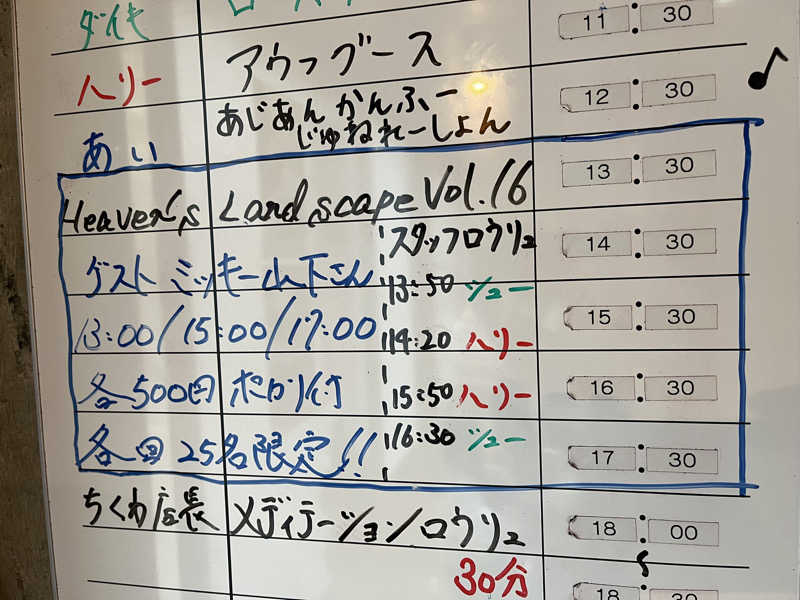 ダイキ 11:30
ハリー アウフグース 12:30
あい あじあん かんふー
じゅねれーしょん
13:30
Heaven's Landscape Vol.16
スタッフロウリュ 14:30
ゲスト ミッキー山下さん 13:50 ジュー
13:00/15:00/17:00 14:20 ハリー 15:30
各500円 ポカリ付 15:50 ハリー 16:30
各回25名限定!! 16:30 ジュー 17:30
ちくわ店長 メディテーションロウリュ 18:00
30分 18:30